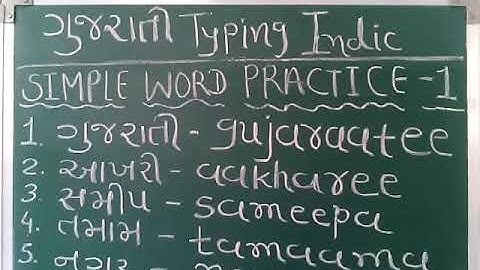 ગુજરાતી Typing Indic
SIMPLE WORD PRACTICE-1
1. ગુજરાતી - gujaraatee
2. આખરી - aakharee
3. સમીપ - sameepa
4. તમામ - tamaama
5. નગર -